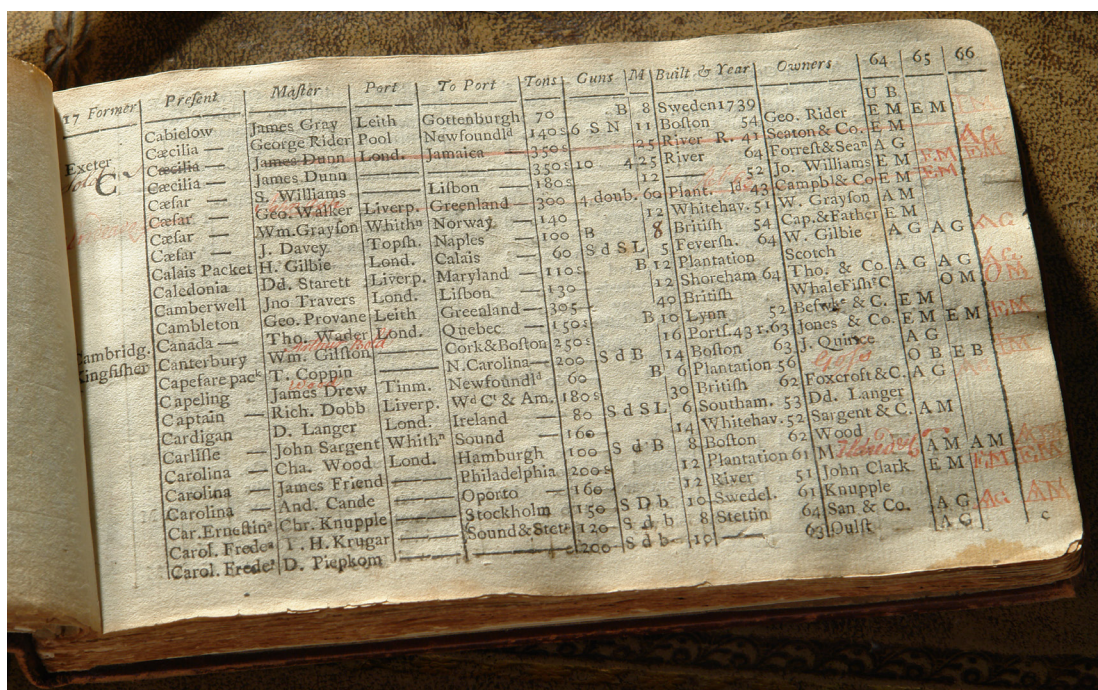 17 Former Present Maſter Port To Port Tons Guns M Built & Year Owners 64 65 66
Cabielow James Gray Leith Gottenburgh 70 B 8 Sweden 1739 U B
Cæcilia — George Rider Pool Newfoundld 140s 6 S N 11 Boſton 54 Geo. Rider E M E M
Exeter Cæcilia — James Dunn Lond. Jamaica — 350s 25 River R. 41 Seaton & Co. E M
C Cæcilia — James Dunn —— —— 350s 10 4 25 River 64 Forreſt&Sean A G
Cæſar — S. Williams —— Liſbon 180s 12 —— 52 Jo. Williams E M
Cæſar — Geo. Walker Liverp. Greenland — 300 4 doub. 60 Plant. 43 Campbl & Co E M
Cæſar — Wm. Grayſon Whithn Norway 140 12 Whitehav. 51 W. Grayſon A M
Cæſar — J. Davey Topſh. Naples — 100 B 8 Britiſh 54 Cap.&Father E M
Calais Packet H. Gilbie Lond. Calais — 60 S d S L 5 Feverſh. 64 W. Gilbie A G A G A G
Caledonia Dd. Starett Liverp. Maryland 110s B 12 Plantation Scotch
Camberwell Jno Travers Lond. Liſbon — 130 12 Shoreham 64 Tho. & Co. A G A G A G
Cambleton Geo. Provane Leith Greenland — 305 40 Britiſh WhaleFiſhrC O M O M
Canada — Tho. Wader Lond. Quebec — 150s B 10 Lynn 52 Beſwke & C. E M
Cambridg. Canterbury Wm. Gilſton —— Cork&Boſton 250s 16 Portſ.43 r.63 Jones & Co. E M E M E M
Kingfiſher Capefare pack T. Coppin —— N.Carolina — 200 S d B 14 Boſton 63 J. Quince A G
Capeling James Drew Tinm. Newfoundld 60 B 6 Plantation 56 O B E B
Captain — Rich. Dobb Liverp. Wd Ct & Am. 180s 30 Britiſh 62 Foxcroft&C. A G
Cardigan D. Langer Lond. Ireland — 80 S d S L 6 Southam. 53 Dd. Langer
Carliſle — John Sargent Whithn Sound — 160 14 Whitehav. 52 Sargent & C. A M
Carolina — Cha. Wood Lond. Hamburgh 100 S d B 8 Boſton 62 Wood
Carolina — James Friend —— Philadelphia 200s 12 Plantation 61 M A M A M
Carolina — And. Cande —— Oporto — 160 12 River 51 John Clark E M E M E M
Car.Erneſtina Chr. Knupple —— Stockholm 150 S D b 10 Swedel. 61 Knupple
Carol. Fredea T. H. Krugar —— Sound&Stete 120 S d b 8 Stettin 64 San & Co. A G A G A M
Carol. Fredea D. Piepkom —— —— 200 S d b 10 —— 63 Oulſt A G c